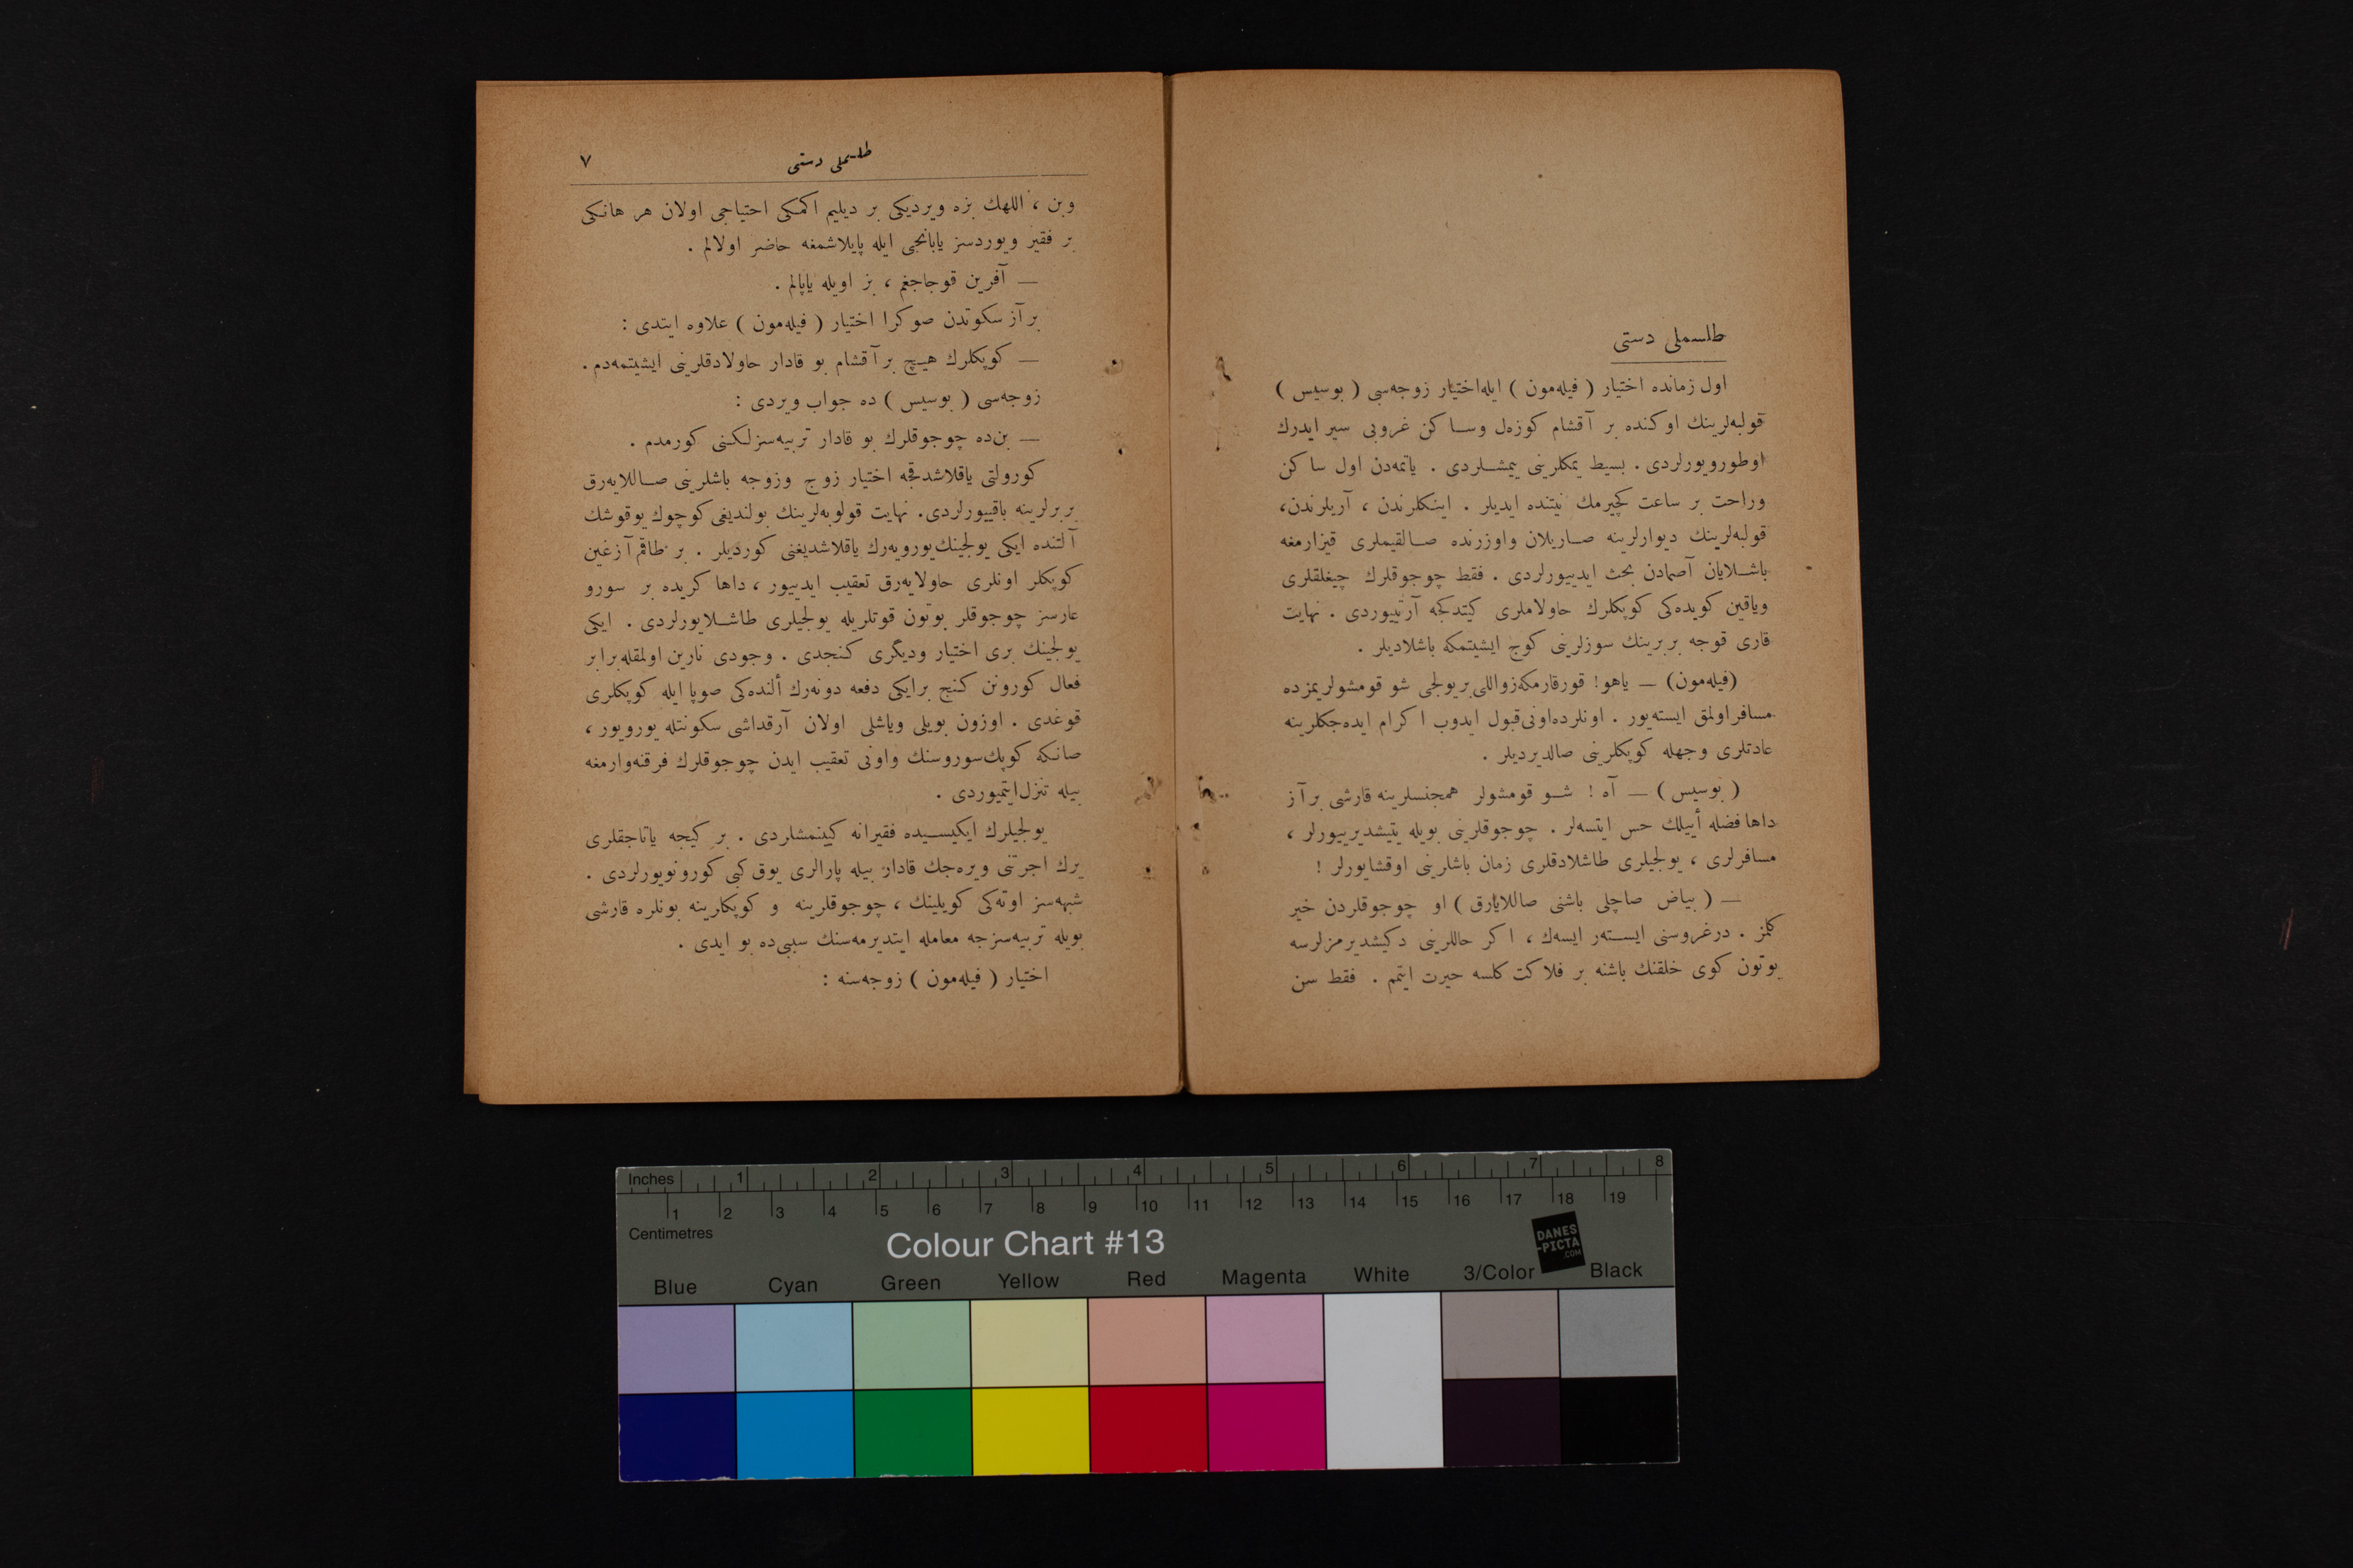 طلسملی دستی
اول زمانده اختیار ( فیله‌مون ) ایله اختیار زوجه‌سی ( بوسیس )
قولبه‌لرینك اوكنده بر آقشام كوزه‌ل وساكن غروبی سیر ایدرك
اوطورویورلردی . بسیط یمكلرینی ییمشلردی . یاتمه‌دن اول ساكن
وراحت بر ساعت كچیرمك نیتنده ایدیلر . اینكلرندن ، آریلرندن،
قولبه‌لرینك دیوارلرینه صاریلان واوزرنده صالقیملری قیزارمغه
باشلایان آصمادن بحث ایدییورلردی . فقط چوجوقلرك چیغلقلری
ویاقین كویده‌كی كوپكلرك حاولاملری كیتدكجه آرتییوردی . نهایت
قاری قوجه بربرینك سوزلرینی كوج ایشیتمكه باشلادیلر .
(فیله‌مون) — یاهو! قورقارمكه زواللی بریولجی شو قومشولریمزده
مسافر اولمق ایسته‌یور . اونلرده اونی قبول ایدوب اكرام ایده‌جكلرینه
عادتلری وجهله كوپكلرینی صالدیردیلر .
( بوسیس ) — آه ! شو قومشولر همجنسلرینه قارشی بر آز
داها فضله أییلك حس ایتسه‌لر . چوجوقلرینی بویله یتیشدیرییورلر ،
مسافرلری ، یولجیلری طاشلادقلری زمان باشلرینی اوقشایورلر !
— ( بیاض صاچلی باشنی صاللایارق ) او چوجوقلردن خیر
كلمز . درغروسنی ایسته‌ر ایسه‌ك ، اكر حاللرینی دكیشدیرمزلرسه
بوتون كوی خلقنك باشنه بر فلاكت كلسه حیرت ایتمم . فقط سن
طلسملی دستی ٧
وبن ، اللهك بزه ویردیكی بر دیلیم اكمكی احتیاجی اولان هر هانكی
بر فقیر ویوردسز یابانجی ایله پایلاشمغه حاضر اولالم .
— آفرین قوجاجغم ، بز اویله یاپالم .
بر آز سكوتدن صوكرا اختیار ( فیله‌مون ) علاوه ایتدی :
— كوپكلرك هیچ بر آقشام بو قادار حاولادقلرینی ایشیتمه‌دم .
زوجه‌سی ( بوسیس ) ده جواب ویردی :
— بن‌ده چوجوقلرك بو قادار تربیه‌سزلكنی كورمدم .
كورولتی یاقلاشدقجه اختیار زوج وزوجه باشلرینی صاللایه‌رق
بربرلرینه باقییورلردی. نهایت قولوبه‌لرینك بولندیغی كوچوك یوقوشك
آلتنده ایكی یولجینك یورویه‌رك یاقلاشدیغنی كوردیلر . بر طاقم آزغین
كوپكلر اونلری حاولایه‌رق تعقیب ایدییور ، داها كریده بر سورو
عارسز چوجوقلر بوتون قوتلریله یولجیلری طاشلایورلردی . ایكی
یولجینك بری اختیار ودیگری كنجدی . وجودی نارین اولمقله برابر
فعال كورونن كنج برایكی دفعه دونه‌رك ألنده‌كی صوپا ایله كوپكلری
قوغدی . اوزون بویلی ویاشلی اولان آرقداشی سكونتله یورویور ،
صانكه كوپك سوروسنك واونی تعقیب ایدن چوجوقلرك فرقنه‌وارمغه
بیله تنزل ایتمیوردی .
یولجیلرك ایكیسیده فقیرانه كیینمشلردی . بر كیجه یاتاجقلری
یرك اجرتنی ویره‌جك قادار بیله پارالری یوق كبی كورونویورلردی .
شبهه‌سز اوته‌كی كویلینك ، چوجوقلرینه و كوپكلرینه بونلره قارشی
بویله تربیه‌سزجه معامله ایتدیرمه‌سنك سببی‌ده بو ایدی .
اختیار ( فیله‌مون ) زوجه‌سنه :
Inches 1 2 3 4 5 6 7 8
1 2 3 4 5 6 7 8 9 10 11 12 13 14 15 16 17 18 19
Centimetres
Colour Chart #13
DANES
-PICTA
.COM
Blue Cyan Green Yellow Red Magenta White 3/Color Black